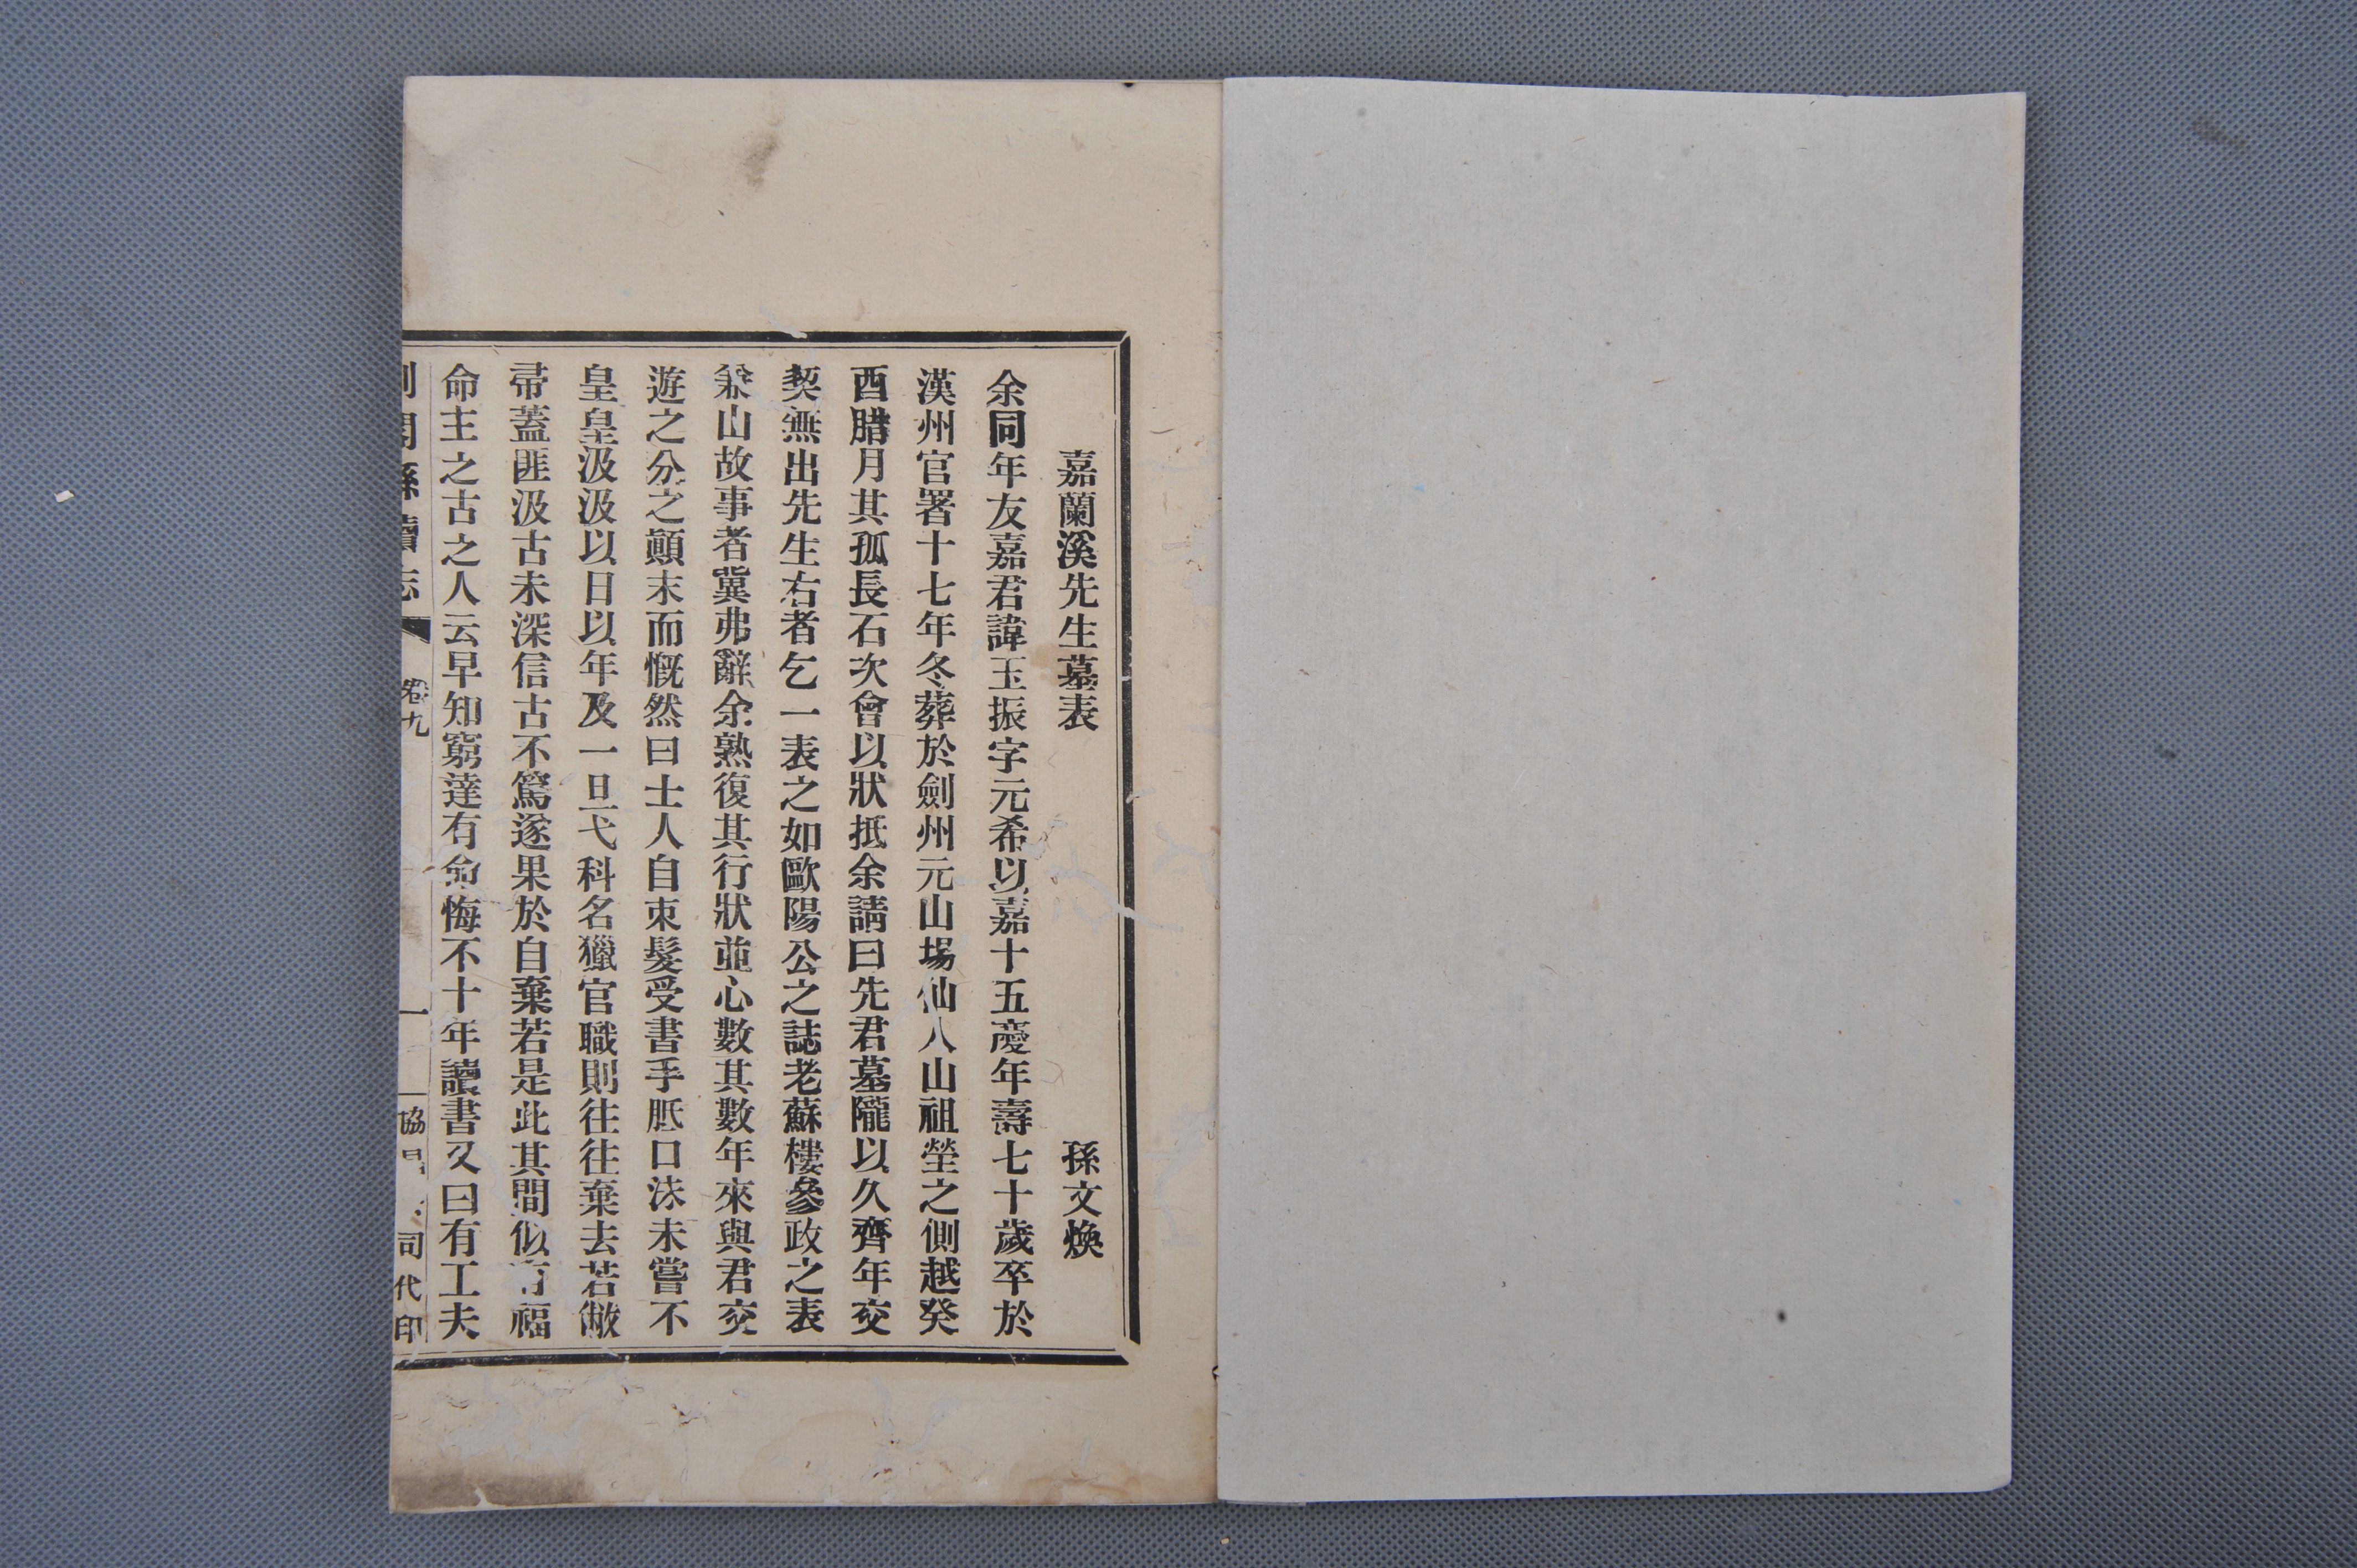 嘉蘭溪先生墓表 孫文煥
余同年友嘉君諱玉振字元希以嘉十五慶年壽七十歲卒於
漢州官署十七年冬葬於劍州元山場仙人山祖塋之側越癸
酉腊月其孤長石次會以狀抵余請曰先君墓隴以久齊年交
契無出先生右者乞一表之如歐陽公之誌老蘇樓參政之表
山故事者冀弗辭余熟復其行狀並心數其數年來與君交
遊之分之顛末而慨然曰士人自束髮受書手胝口沫未嘗不
皇皇汲汲以日以年及一旦弋科名獵官職則往往棄去若敝
帚蓋匪汲古未深信古不篤遂果於自棄若是此其間似有福
命主之古之人云早知窮達有命悔不十年讀書又曰有工夫
劍閣縣續志 卷九 一 協昌 司代印